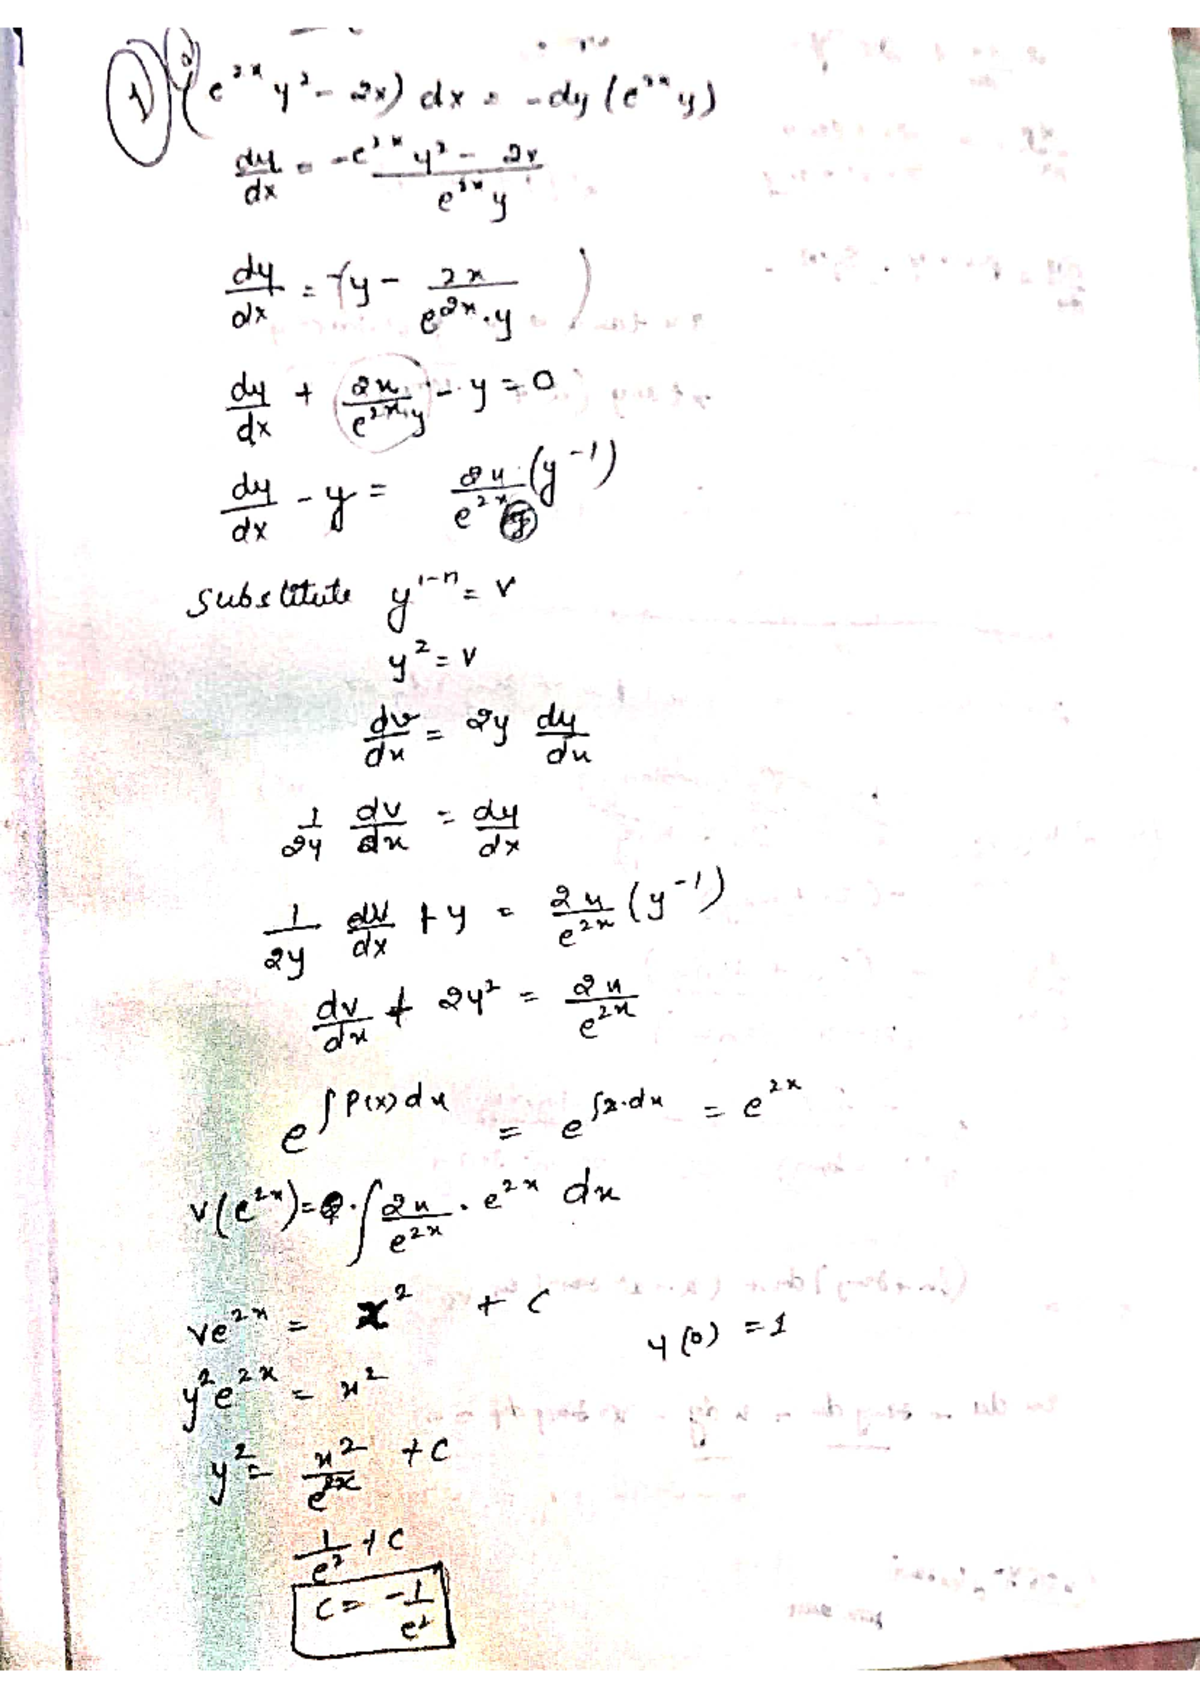 1) (e^{2x} y^2 - 2x) dx = -dy (e^{2x} y)
dy/dx = -e^{2x} y^2 - 2x / e^{2x} y
dy/dx = -(y - 2x / e^{2x}.y)
dy/dx + 2x / e^{2x}.y - y = 0
dy/dx - y = 2x / e^{2x} (y^{-1})
Substitute y^{1-n} = v
y^2 = v
dv/dx = 2y dy/dx
1/2y dv/dx = dy/dx
1/2y dv/dx + y = 2x / e^{2x} (y^{-1})
dv/dx + 2y^2 = 2x / e^{2x}
e^{∫P(x)dx} = e^{∫2.dx} = e^{2x}
v(e^{2x}) = 2.∫ 2x / e^{2x} . e^{2x} dx
ve^{2x} = x^2 + C
y(0) = 1
y^2 e^{2x} = x^2
y^2 = x^2 / e^{2x} + C
1/e^2 + C
C = -1/e^2